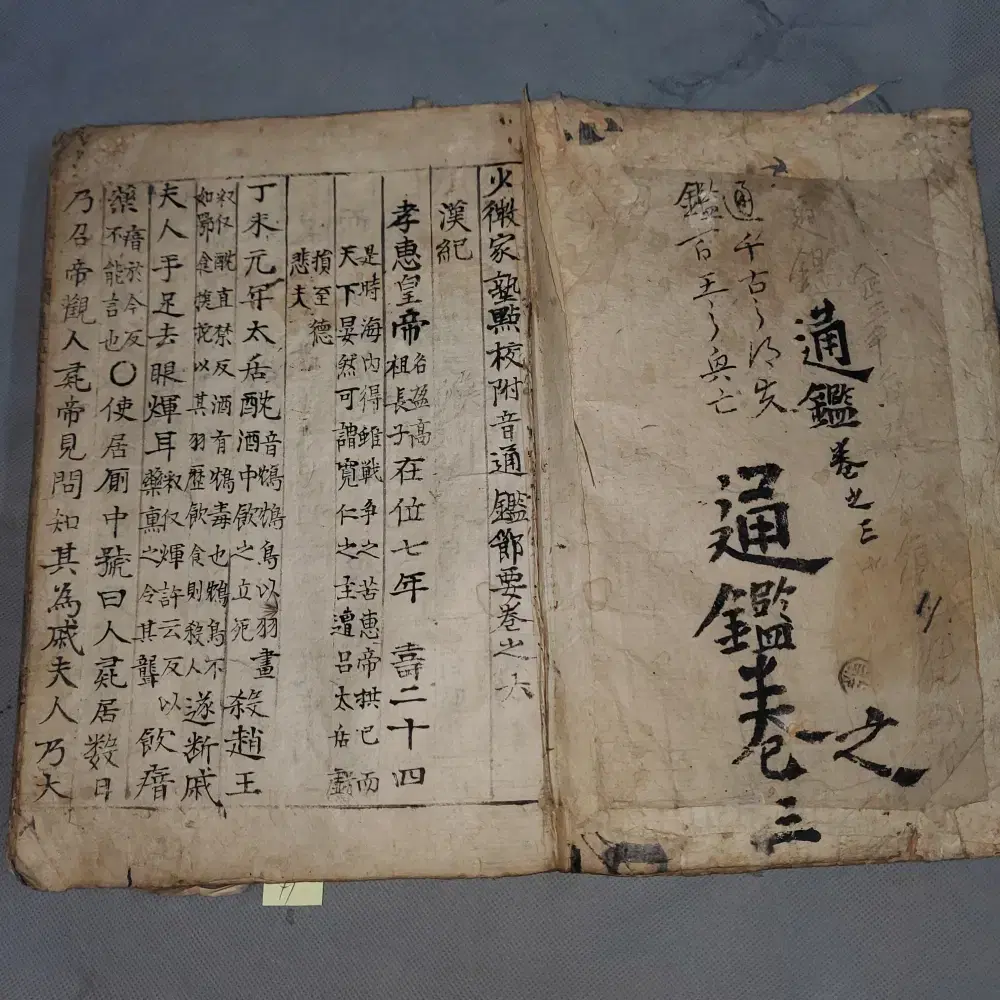 通鑑卷之三
通鑑卷之三
通千古之得失
鑑百王之興亡
少微家塾點校附音通鑑節要卷之六
漢紀
孝惠皇帝名盈高祖長子在位七年 壽二十四
是時海內得離戦争之苦惠帝拱己而
天下晏然可謂寬仁之主遭呂太后虧
損至德
悲夫
丁未元年太后酖酒中飮之立死殺趙王
音鴆鴆鳥以羽畫
叔仅酖直禁反酒有鴆毒也鴆鳥不
如鄂食蝮蛇以其羽歷飮食則殺人遂断戚
夫人手足去眼煇耳叔仅煇許云反以飮瘖
藥熏之令其聾
藥瘖於今反不能言也〇使居厠中號曰人彘居数日
乃召帝觀人彘帝見問知其為戚夫人乃大